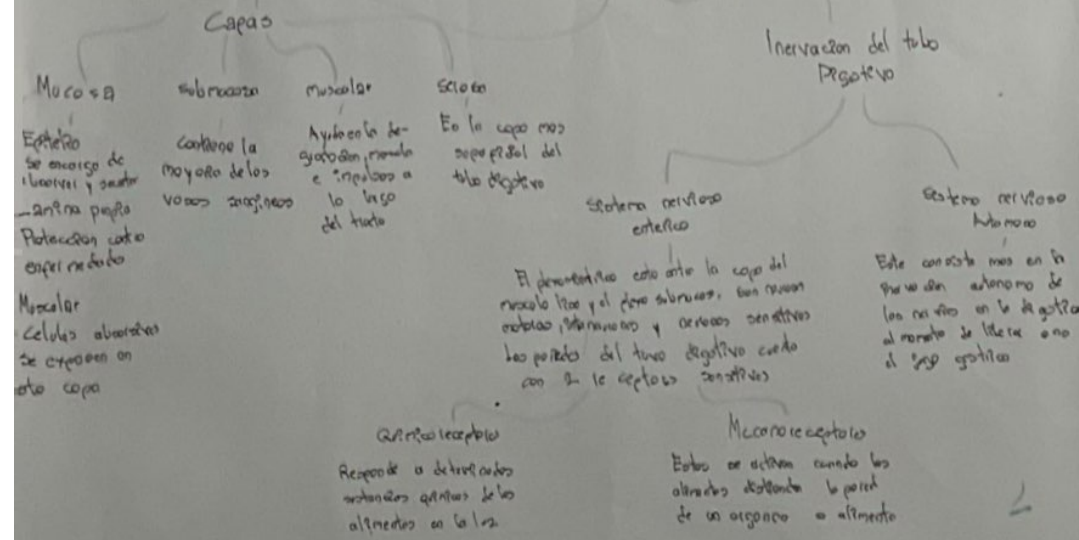 Capas
Mucosa
Epitelio
se encarga de
absorver y secretar
Lamina propia
Proteccion contra
enfermedades
Muscular
Celulas absortivas
se exponen en
esta capa
submucosa
Contiene la
mayoria de los
vasos sanguineos
muscular
Ayuda en la de-
e impulsos a
lo largo
del tracto
serosa
Es la capa mas
superficial del
tubo digestivo
Inervacion del tubo
Digestivo
Sistema nervioso
enterico
El plexo mienterico esta entre la capa del
musculo liso y el plexo submucoso, son neuronas
motoras, interneuronas y neuronas sensitivas
Las paredes del tubo digestivo cuenta
con 2 receptores sensitivos
Quimicoreceptores
Responde a determinadas
sustancias quimicas de los
alimentos en la luz
Mecanoreceptores
Estos se activan cuando los
alimentos distiende la pared
de un organo o alimento
Sistema nervioso
Autonomo
Este consiste mas en la
autonomo de
los nervios en la digestion
al momento de liberar o no
el jugo gastrico